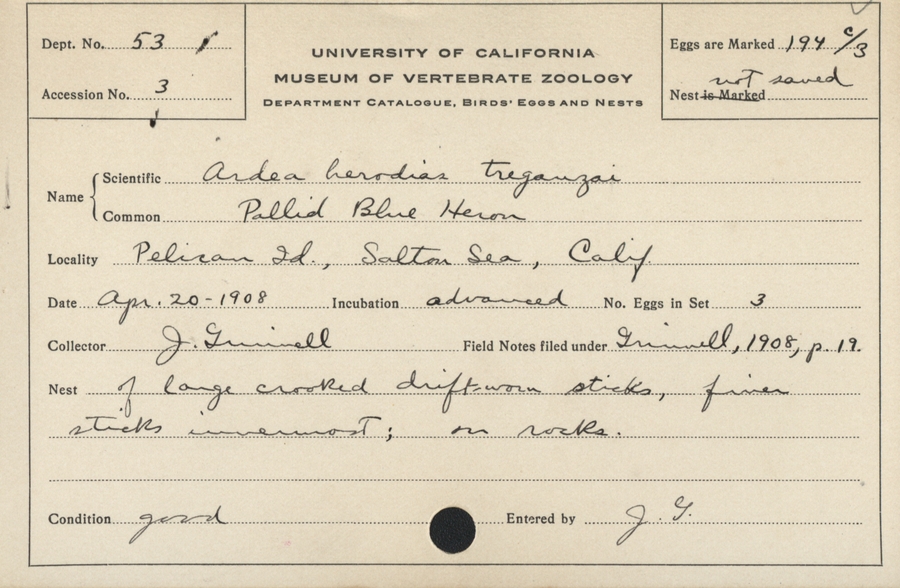 Dept. No. 53
UNIVERSITY OF CALIFORNIA
MUSEUM OF VERTEBRATE ZOOLOGY
DEPARTMENT CATALOGUE, BIRDS' EGGS AND NESTS
Accession No. 3
Eggs are Marked 194 c/3
not saved
Nest is Marked
Name
Scientific Ardea herodias treganzai
Common Pallid Blue Heron
Locality Pelican Id., Salton Sea, Calif.
Date Apr. 20-1908 Incubation advanced No. Eggs in Set 3
Collector J. Grinnell Field Notes filed under Grinnell, 1908, p. 19.
Nest of large crooked drift-worn sticks, finer
sticks innermost; on rocks.
Condition good Entered by J. G.